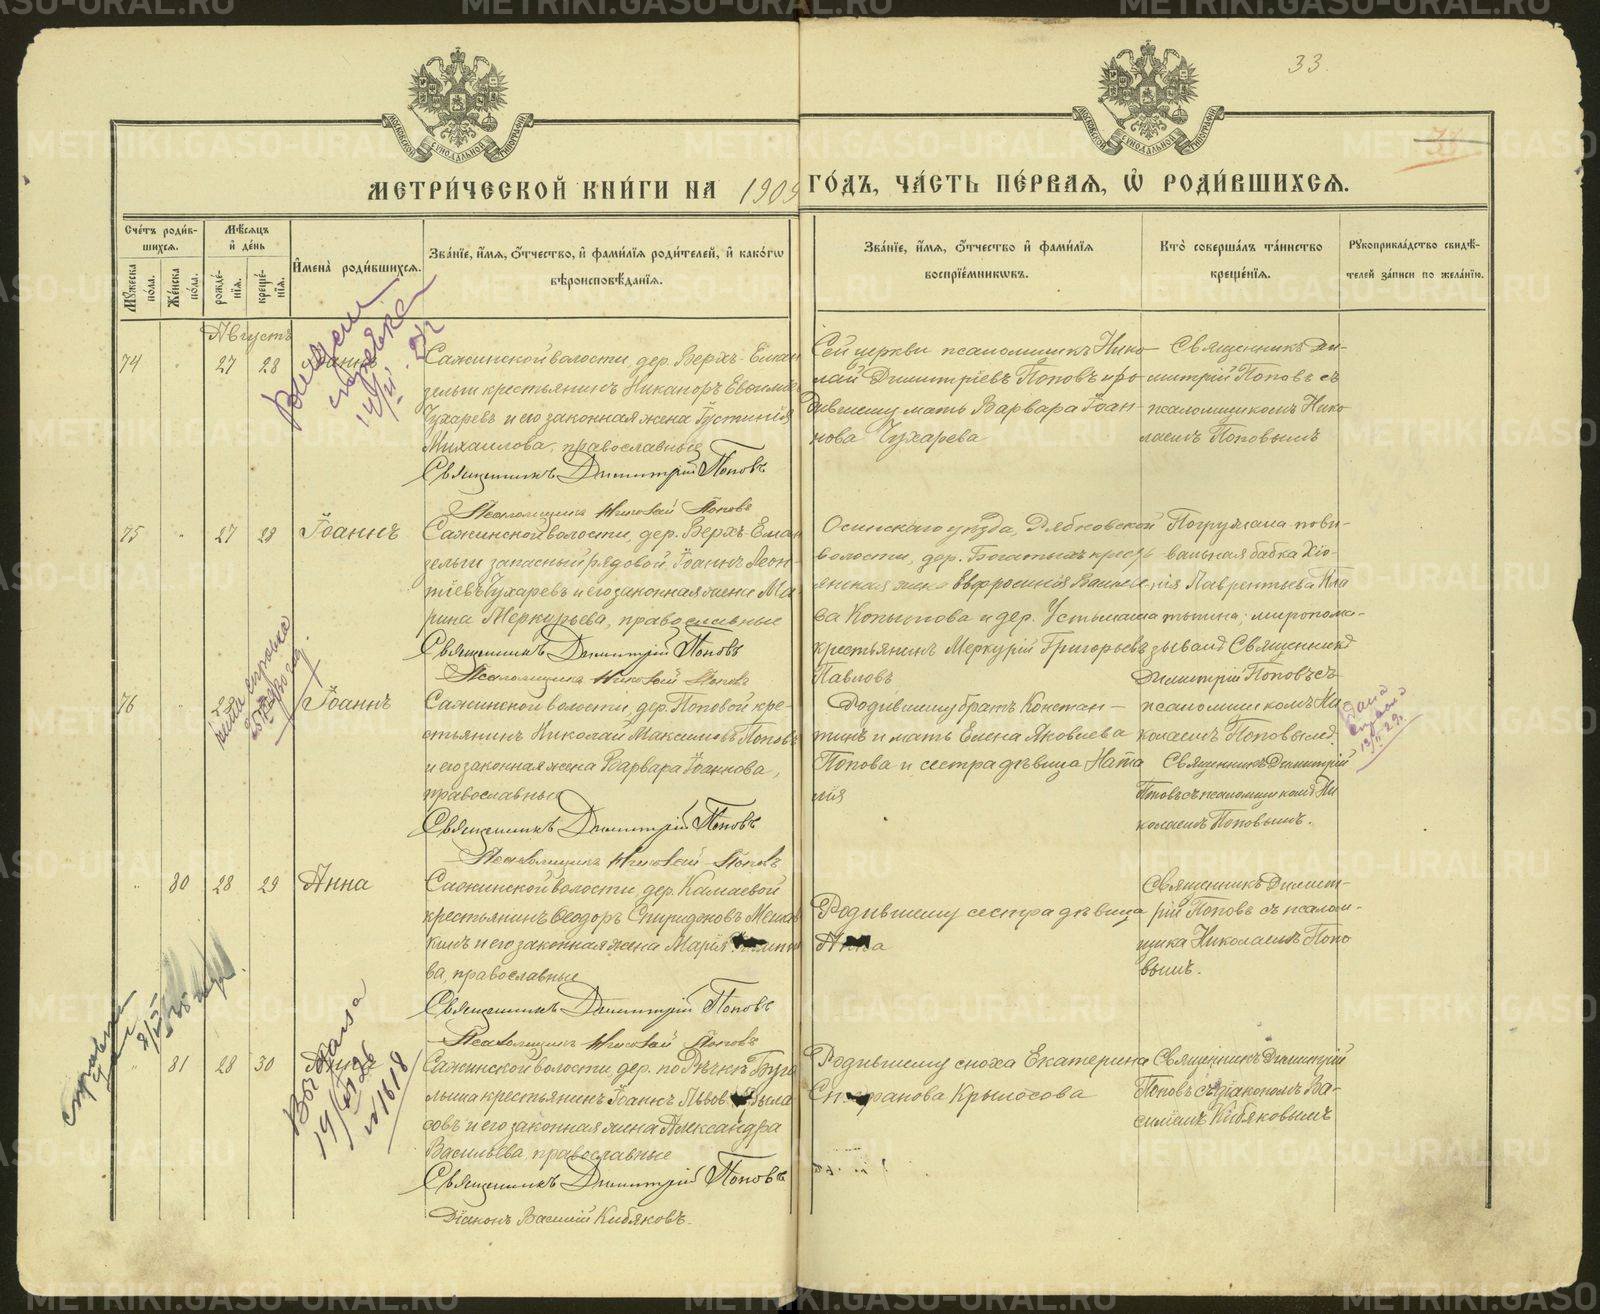 33
МЕТРИ́ЧЕСКОЙ КНИ́ГИ НА 1909 ГО́ДЪ, ЧА́СТЬ ПЕ́РВАЯ, Ѡ РОДИ́ВШИХСЯ.
Сче́тъ роди́в-
шихся.
Мꙋжеска по́ла.
Же́нска по́ла.
Мѣ́сяцъ и де́нь
рожде́-
нїя.
креще́-
нїя.
Имена̀ роди́вшихся.
Зва́нїе, и́мя, о́тчество, и фами́лїя роди́телей, и како́гѡ
вѣроисповѣ́данїя.
Зва́нїе, и́мя, о́тчество и фами́лїя
воспрїе́мникѡвъ.
Кто̀ соверша́лъ та́инство
креще́нїя.
Рꙋкоприкла́дство свидѣ́-
телей за́писи по жела́нїю.
Августъ
74
27
28
Іоаннъ
Сажинской волости, дер. Верхъ-Еман
зельги крестьянинъ Никаноръ Евѳимі
Чухаревъ и его законная жена Іустинія
Михаилова, православные
Священникъ Димитрій Поповъ
Псаломщикъ Николай Поповъ
Сей церкви псаломщикъ Нико-
лай Димитріевъ Поповъ и ро-
дившему мать Варвара Іоан-
нова Чухарева
Священникъ Ди-
митрій Поповъ съ
псаломщикомъ Нико-
лаемъ Поповымъ
75
27
28
Іоаннъ
Сажинской волости, дер. Верхъ-Еман
зельги запасный рядовой Іоаннъ Леон-
тіевъ Чухаревъ и его законная жена Ма-
рина Меркурьева, православные
Священникъ Димитрій Поповъ
Псаломщикъ Николай Поповъ
Осинскаго уѣзда, Дябковской
волости, дер. Богатыхъ кресть-
янская жена Евфросинія Василье-
ва Копытова и дер. Устьмаша
крестьянинъ Меркурій Григорьевъ
Павловъ
Погружала пови-
вальная бабка Хіо-
нія Лаврентьева Пла-
тыгина; миропома-
зывалъ Священникъ
Димитрій Поповъ съ
псаломщикомъ Ни-
колаемъ Поповымъ.
76
Іоаннъ
Сажинской волости, дер. Поповой кре-
стьянинъ Николай Максимовъ Поповъ
и его законная жена Варвара Іоаннова,
православные
Священникъ Димитрій Поповъ
Псаломщикъ Николай Поповъ
Родившему братъ Констан-
тинъ и мать Елена Яковлева
Попова и сестра дѣвица Ната
лія
Священникъ Димитрій
Поповъ съ псаломщикомъ Ни
колаемъ Поповымъ.
80
28
29
Анна
Сажинской волости, дер. Камаевой
крестьянинъ Ѳеодоръ Спиридоновъ
и его законная жена Марія
ва, православные
Священникъ Димитрій Поповъ
Псаломщикъ Николай Поповъ
Родившему сестра дѣвица
Анна
Священникъ Димит-
рій Поповъ съ псалом-
щика Николаемъ Попо
вымъ.
81
28
30
Сажинской волости, дер. по Рѣчкѣ Буга
лыша крестьянинъ Іоаннъ Львов
совъ и его законная жена Александра
Васильева, православные
Священникъ Димитрій Поповъ
Діаконъ Василій Кибяковъ.
Родившему сноха Екатерина
Крылосова
Священникъ Димитрій
Поповъ съ діакономъ Ва-
силіемъ Кибяковымъ
19
№ 1618
METRIKI.GASO-URAL.RU